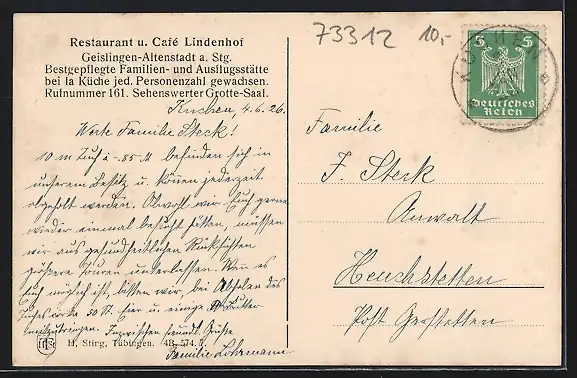 Restaurant u. Café Lindenhof
Geislingen-Altenstadt a. Stg.
Bestgepflegte Familien- und Ausflugsstätte
bei la Küche jed. Personenzahl gewachsen.
Rufnummer 161. Sehenswerter Grotte-Saal.
Kuchen, 4.6.26.
Werte Familie Steck!
10 m Tuch befinden sich in
unserem Besitz u. können jederzeit
abgeholt werden. Obwohl wir Euch gerne
wieder einmal besucht hätten, müssen
wir aus gesundheitlichen Rücksichten
größere Touren unterlassen. Wenn es
Euch möglich ist, bitten wir, bei Abholen des
Tuches 50 St. Eier u. einige Butter
mitzubringen. Inzwischen freundl. Grüße
Familie Lohrmann
H. Stirg, Tübingen. 4B. 574.7.
73312 10,-
KUCHEN
5 5
Deutsches
Reich
Familie
F. Steck
Anwalt
Heuchstetten
Post Gerstetten